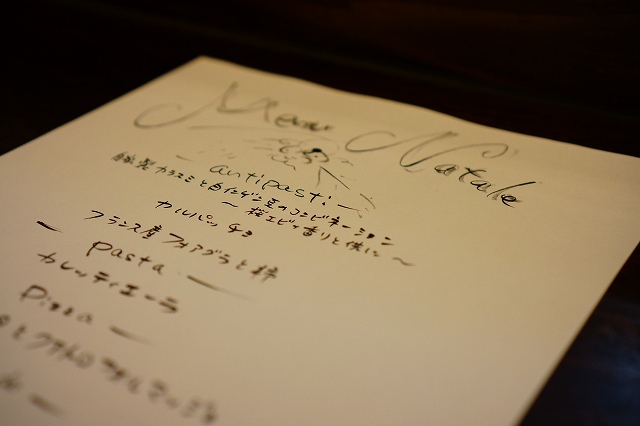 Menu Natale
— antipasti —
燻製カラスミと白インゲン豆のコンビネーション
カルパッチョ
〜桜エビの香りと供に〜
フランス産フォアグラと柿
— pasta —
カレッティエーラ
pizza —